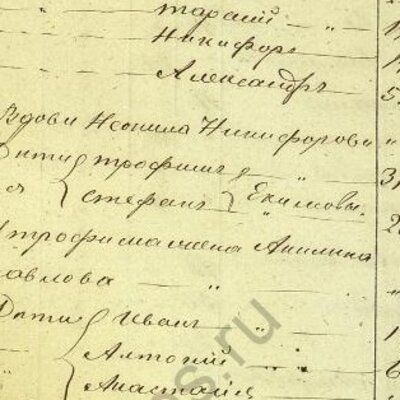 Тарасий — " — 1
Никифоръ 1
Александръ 5
Вдова Неонила Никифорова "
Дѣти Трофимъ " 31
Стефанъ Екимовы. 2
Трофима жена Акилина
Павлова — " — "
Дѣти Иванъ " 1
Антоній 6
Анастасія "
s.ru